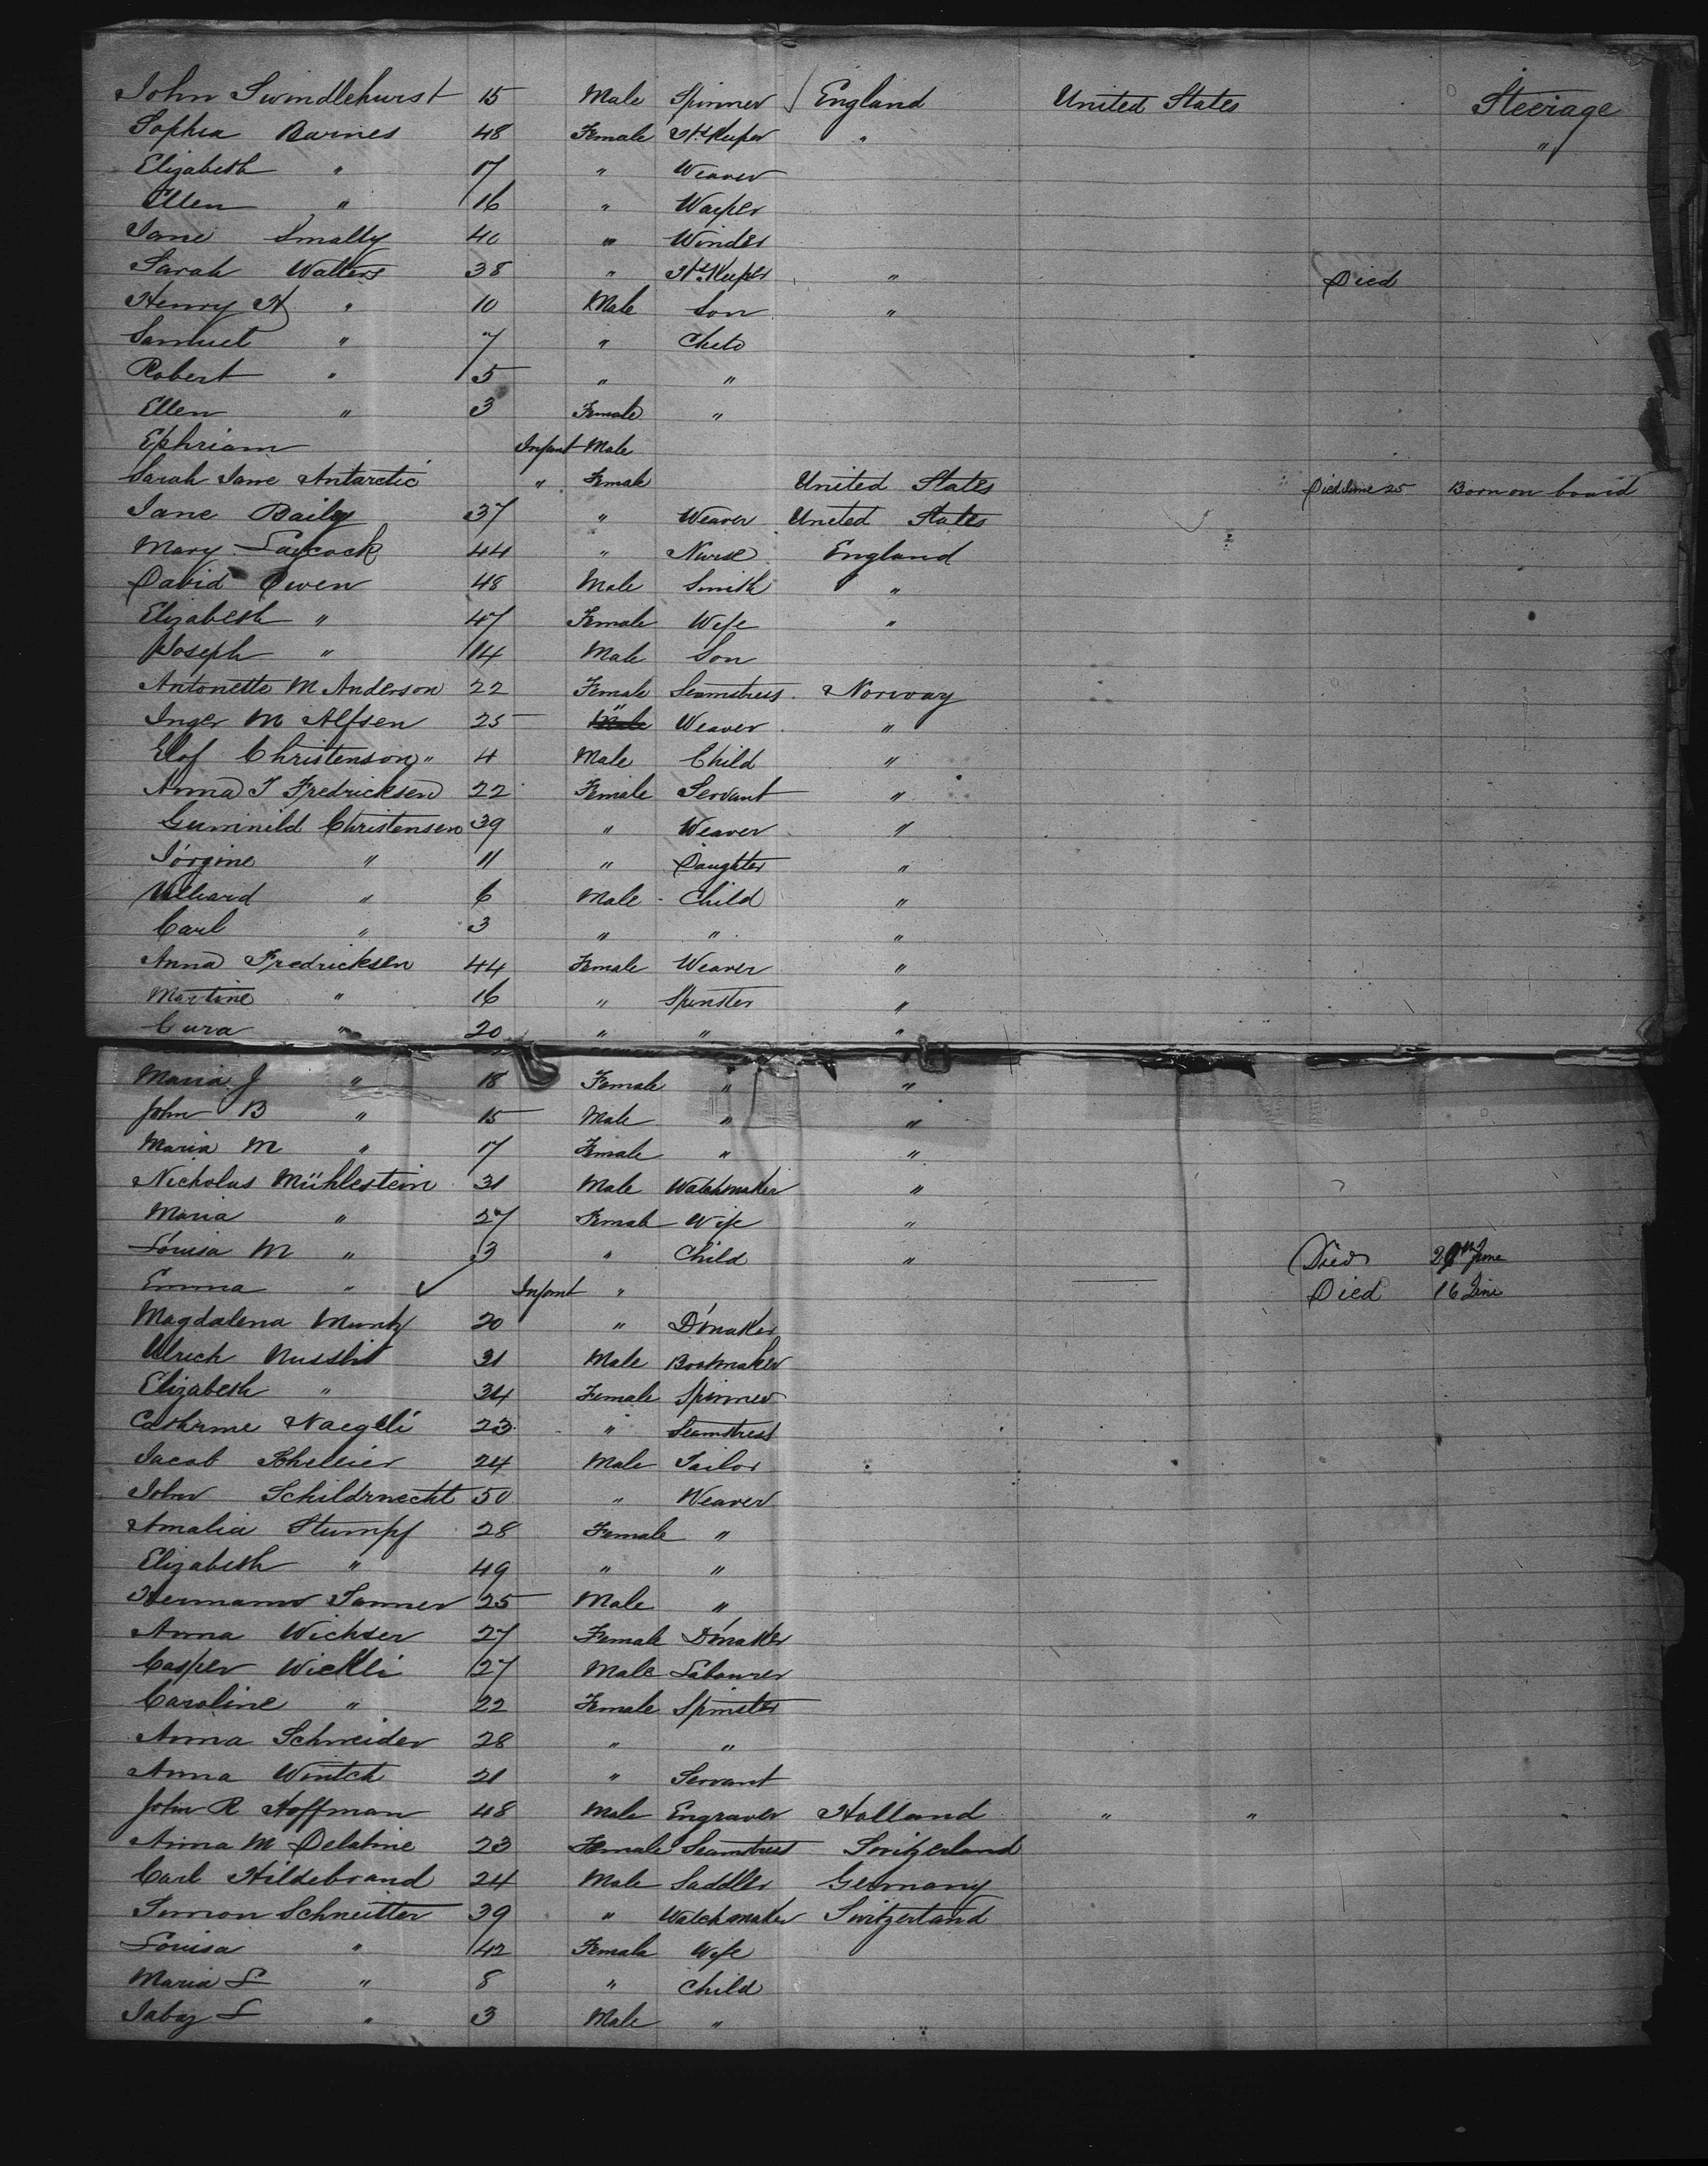 John Swindlehurst 15 Male Spinner England United States Steerage
Sophia Barnes 48 Female Hs. Keeper " "
Elizabeth " 17 " Weaver
Ellen " 16 " Warper
Jane Smally 40 " Winder
Sarah Walters 38 " Hs. Keeper " Died
Henry H " 10 Male Son "
Samuel " 7 " Child
Robert " 5 " "
Ellen " 3 Female "
Ephriam Infant Male
Sarah Jane Antarctic " Female United States Died June 25 Born on board
Jane Baily 37 " Weaver United States
Mary Laycock 44 " Nurse England
David Owen 48 Male Smith "
Elizabeth " 47 Female Wife "
Joseph " 14 Male Son
Antonette M Anderson 22 Female Seamstress Norway
Inger M Alfsen 25 " Weaver "
Elof Christenson " 4 Male Child "
Anna J Fredricksen 22 Female Servant "
Gunnild Christensen 39 " Weaver "
Jörgine " 11 " Daughter "
" 6 Male Child "
Carl " 3 " " "
Anna Fredricksen 44 Female Weaver "
Martine " 16 " Spinster "
" 20 " " "
Maria J " 18 Female " "
John B " 15 Male " "
Maria M " 17 Female " "
Nicholus Mühlestein 31 Male Watchmaker "
Maria " 27 Female Wife "
Louisa M " 3 " Child " Died June
Emma " Infant " Died 16 June
Magdalena 20 " D'maker
Ulrich 31 Male Bootmaker
Elizabeth " 34 Female Spinner
Catherine Naegeli 23 " Seamstress
Jacob 24 Male Tailor
John Schildrnecht 50 " Weaver
Amalia Stumpf 28 Female "
Elizabeth " 49 " "
Hermann Tanner 25 Male "
Anna Wichser 27 Female D'maker
Casper Wickli 27 Male Labourer
Caroline " 22 Female Spinster
Anna Schneider 28 " "
Anna Wintch 21 " Servant
John R Hoffman 48 Male Engraver Holland " "
Anna M 23 Female Seamstress Switzerland
Carl Hildebrand 24 Male Saddler Germany
Simon Schneitter 39 " Watchmaker Switzerland
Louisa " 42 Female Wife
Maria L " 8 " Child
L " 3 Male "